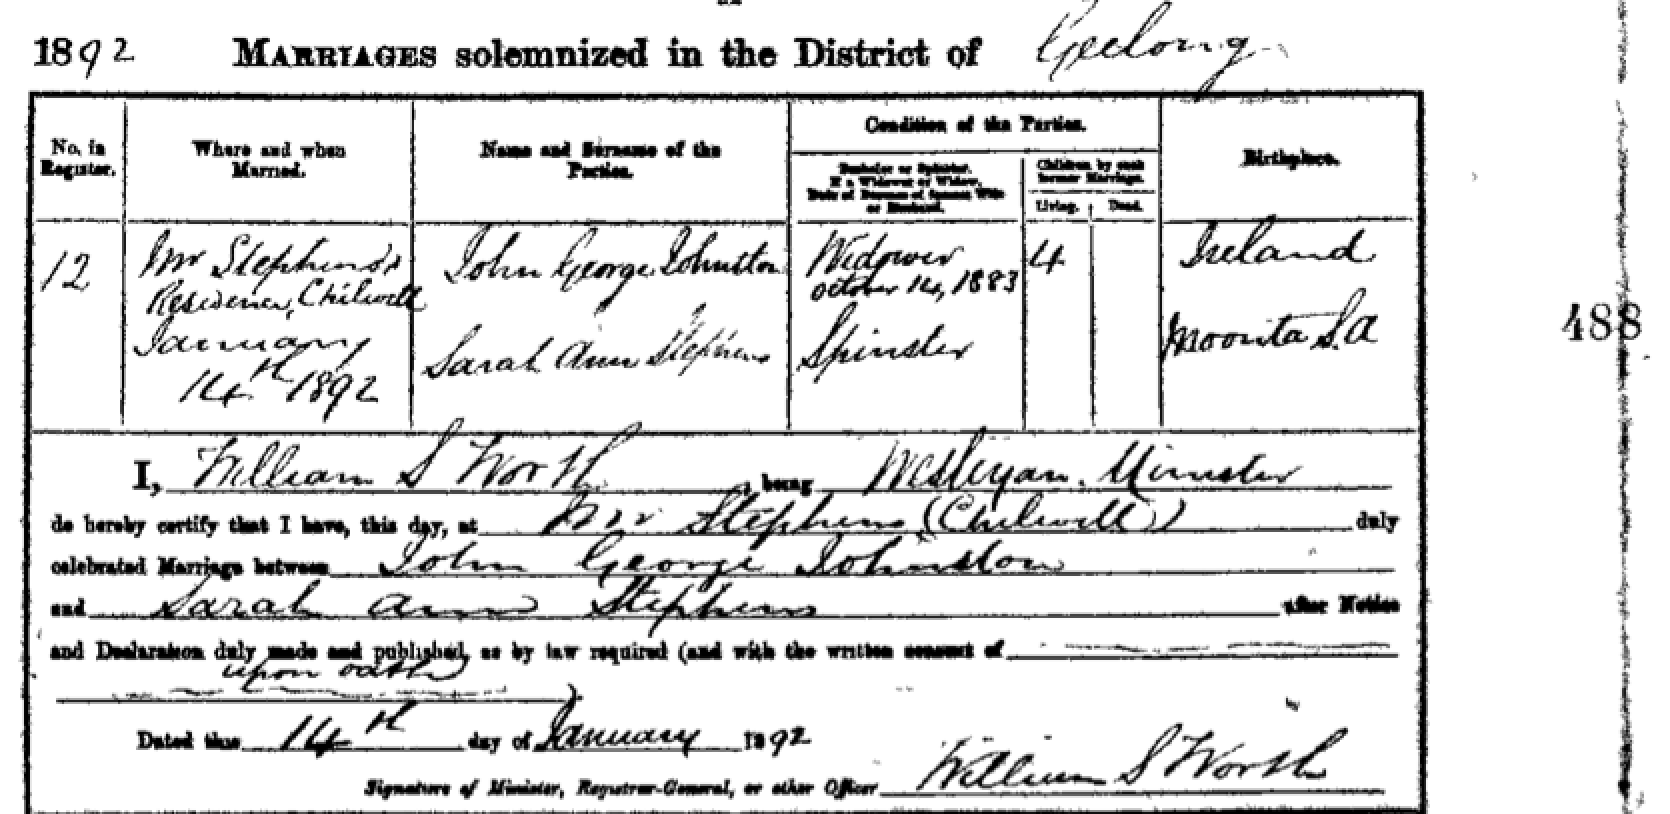 1892 MARRIAGES solemnized in the District of Geelong
No. in Register.
Where and when Married.
Name and Surname of the Parties.
Condition of the Parties.
Bachelor or Spinster.
If a Widower or Widow,
Date of Decease of former Wife
or Husband.
Children by each former Marriage.
Living. Dead.
Birthplace.
12
Mr Stephens's
Residence, Chilwell
January
14th 1892
John George Johnston
Sarah Ann Stephens
Widower
October 14, 1883
Spinster
4
Ireland
Moonta S.A
488
I, William S Worth, being Wesleyan Minister
do hereby certify that I have, this day, at Mr Stephens (Chilwell) duly
celebrated Marriage between John George Johnston
and Sarah Ann Stephens after Notice
and Declaration duly made and published, as by law required (and with the written consent of
upon oath
)
Dated this 14th day of January 1892
Signature of Minister, Registrar-General, or other Officer William S Worth